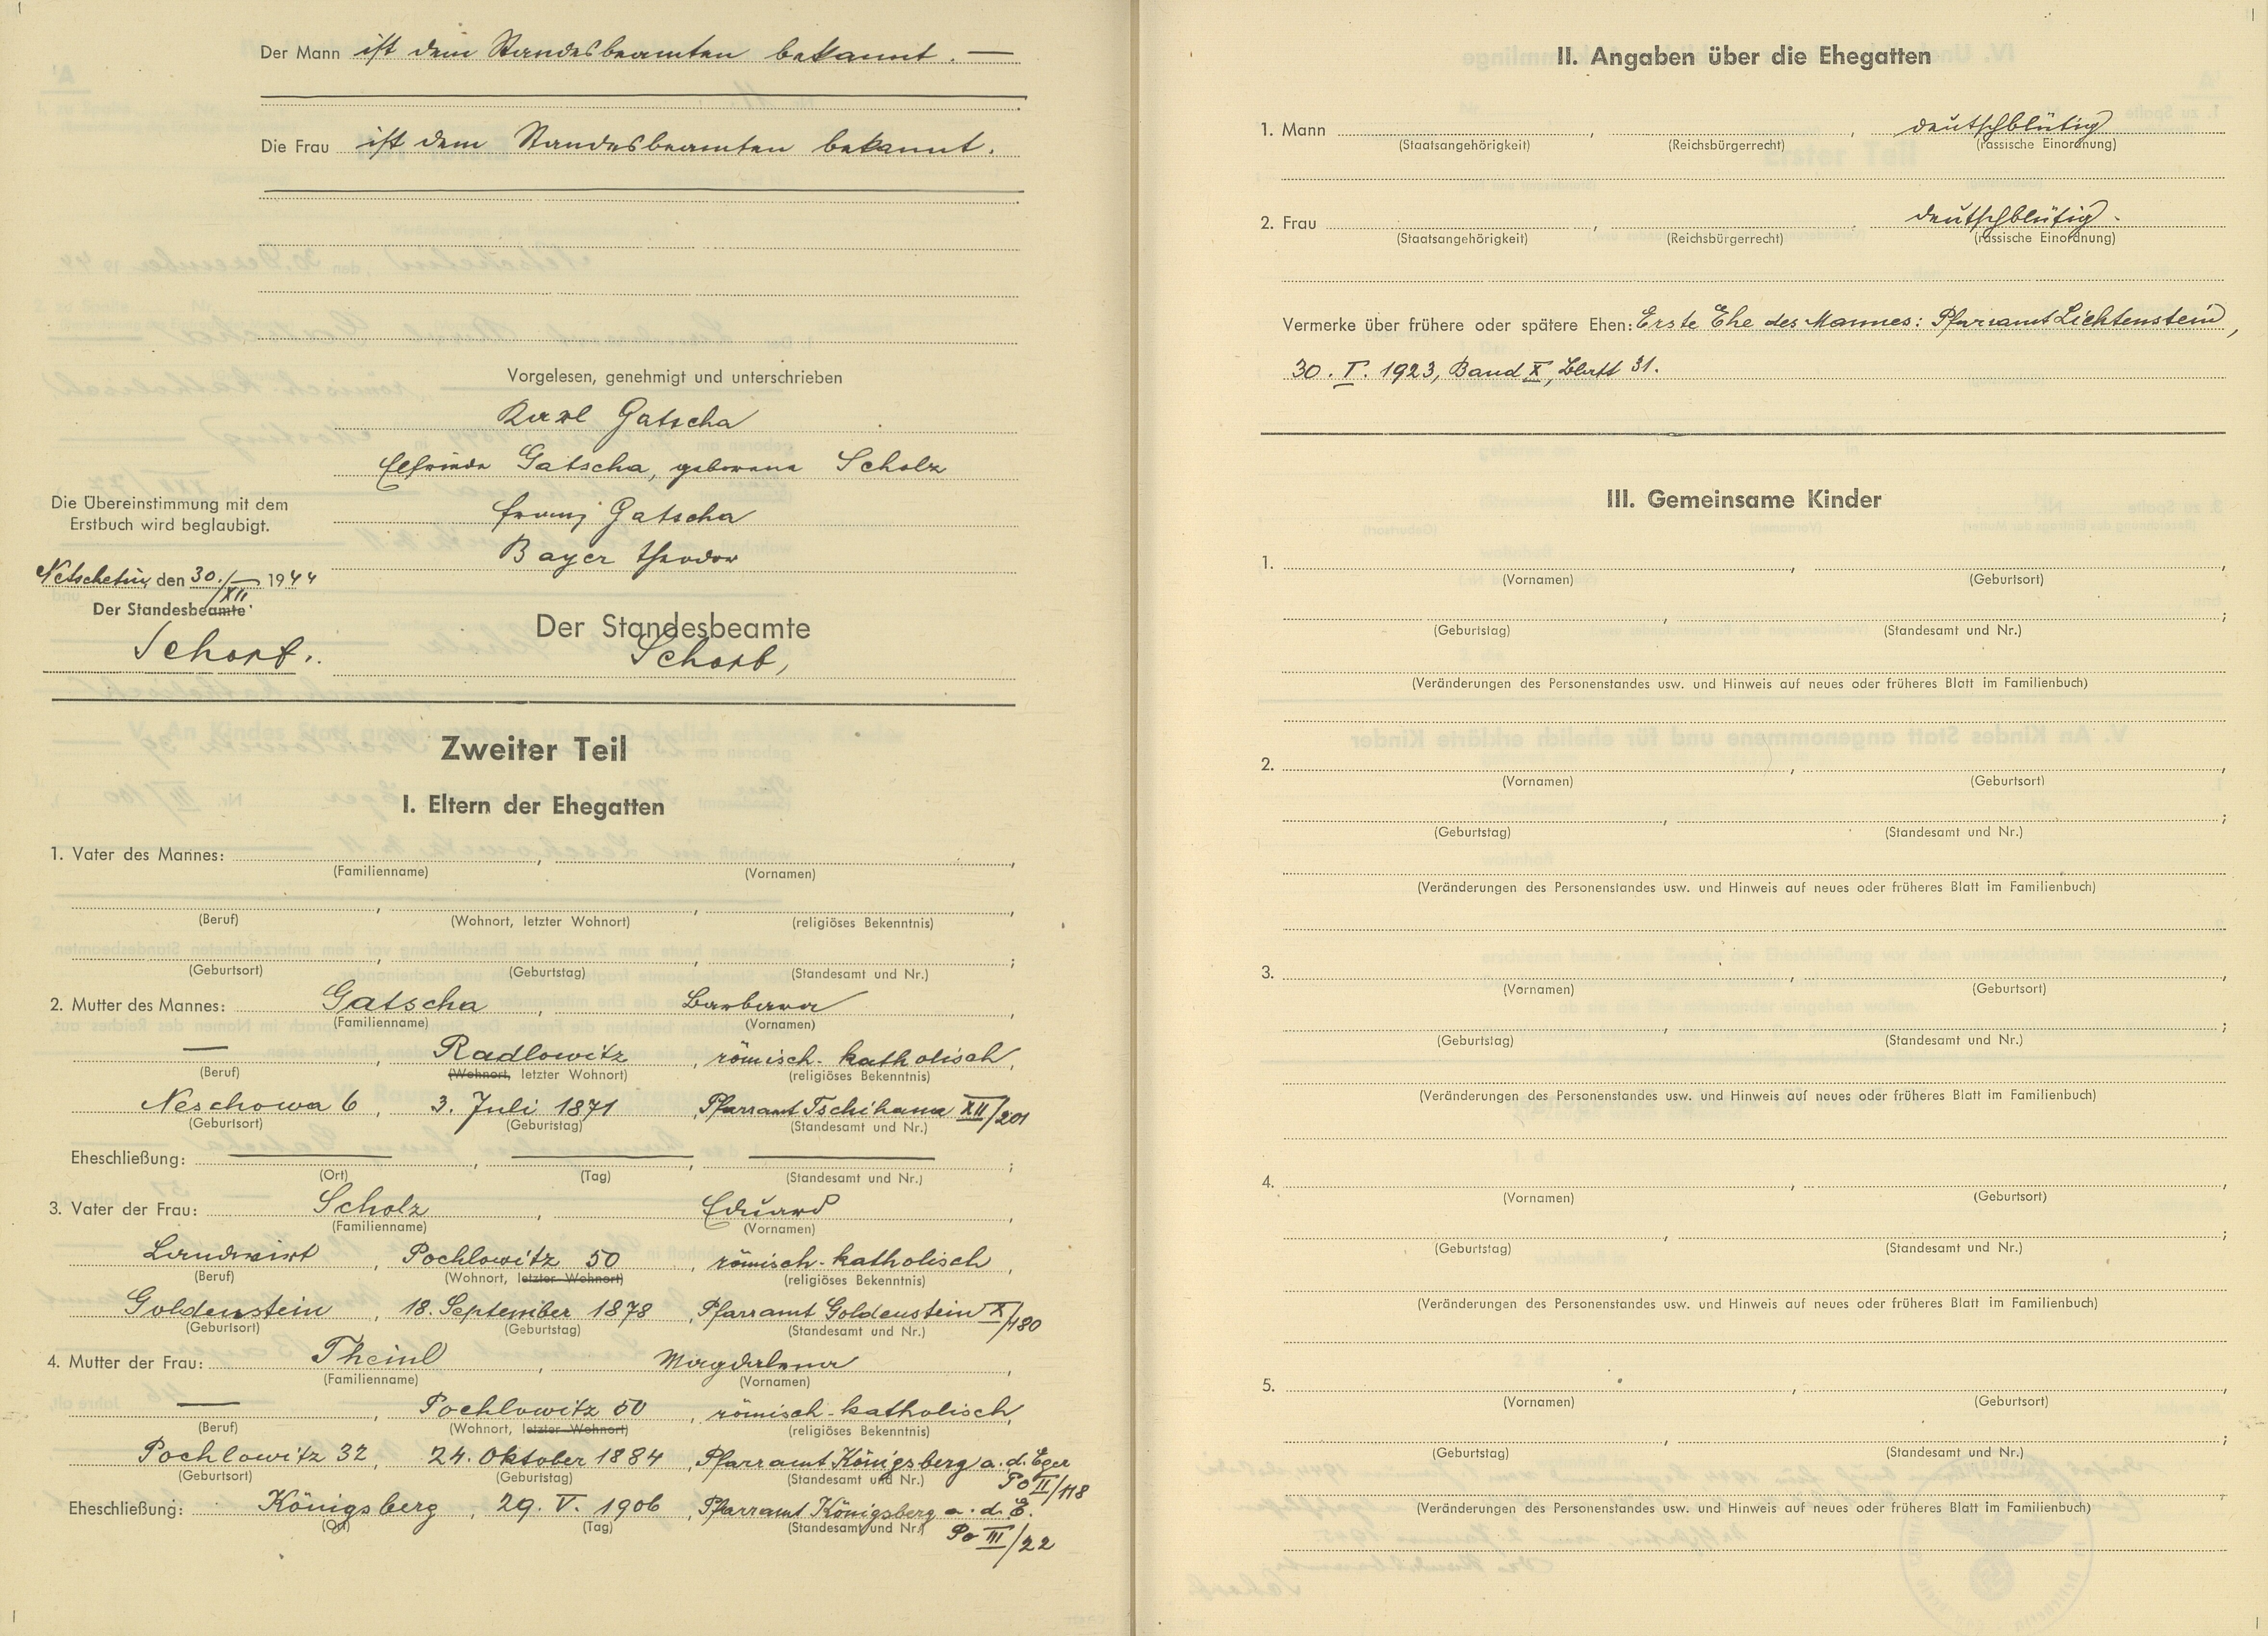 Der Mann ist dem Standesbeamten bekannt. —
Die Frau ist dem Standesbeamten bekannt.
Vorgelesen, genehmigt und unterschrieben
Karl Gatscha
Elfriede Gatscha, geborene Scholz
Franz Gatscha
Bayer Theodor
Die Übereinstimmung mit dem
Erstbuch wird beglaubigt.
Netschetin, den 30./XII 1944
Der Standesbeamte
Schorb.
Der Standesbeamte
Schorb,
Zweiter Teil
I. Eltern der Ehegatten
1. Vater des Mannes: , ,
(Familienname) (Vornamen)
, , ,
(Beruf) (Wohnort, letzter Wohnort) (religiöses Bekenntnis)
, , ;
(Geburtsort) (Geburtstag) (Standesamt und Nr.)
2. Mutter des Mannes: Gatscha , Barbara ,
(Familienname) (Vornamen)
— , Radlowitz , römisch-katholisch ,
(Beruf) (Wohnort, letzter Wohnort) (religiöses Bekenntnis)
Neschowa 6 , 3. Juli 1871 , Pfarramt Tschihana XII/201
(Geburtsort) (Geburtstag) (Standesamt und Nr.)
Eheschließung: — , — , — ;
(Ort) (Tag) (Standesamt und Nr.)
3. Vater der Frau: Scholz , Eduard ,
(Familienname) (Vornamen)
Landwirt , Pochlowitz 50 , römisch-katholisch ,
(Beruf) (Wohnort, letzter Wohnort) (religiöses Bekenntnis)
Goldenstein , 18. September 1878 , Pfarramt Goldenstein X/180
(Geburtsort) (Geburtstag) (Standesamt und Nr.)
4. Mutter der Frau: Theinl , Magdalena ,
(Familienname) (Vornamen)
— , Pochlowitz 50 , römisch-katholisch,
(Beruf) (Wohnort, letzter Wohnort) (religiöses Bekenntnis)
Pochlowitz 32, 24. Oktober 1884 , Pfarramt Königsberg a. d. Eger
(Geburtsort) (Geburtstag) (Standesamt und Nr.) Po II/118
Eheschließung: Königsberg , 29. V. 1906 , Pfarramt Königsberg a. d. E.
(Ort) (Tag) (Standesamt und Nr.) Po III/22
II. Angaben über die Ehegatten
1. Mann , , deutschblütig
(Staatsangehörigkeit) (Reichsbürgerrecht) (rassische Einordnung)
2. Frau , , deutschblütig.
(Staatsangehörigkeit) (Reichsbürgerrecht) (rassische Einordnung)
Vermerke über frühere oder spätere Ehen: Erste Ehe des Mannes: Pfarramt Lichtenstein,
30. I. 1923, Band X, Blatt 31.
III. Gemeinsame Kinder
1. , ,
(Vornamen) (Geburtsort)
, ;
(Geburtstag) (Standesamt und Nr.)
(Veränderungen des Personenstandes usw. und Hinweis auf neues oder früheres Blatt im Familienbuch)
2. , ,
(Vornamen) (Geburtsort)
, ;
(Geburtstag) (Standesamt und Nr.)
(Veränderungen des Personenstandes usw. und Hinweis auf neues oder früheres Blatt im Familienbuch)
3. , ,
(Vornamen) (Geburtsort)
, ;
(Geburtstag) (Standesamt und Nr.)
(Veränderungen des Personenstandes usw. und Hinweis auf neues oder früheres Blatt im Familienbuch)
4. , ,
(Vornamen) (Geburtsort)
, ;
(Geburtstag) (Standesamt und Nr.)
(Veränderungen des Personenstandes usw. und Hinweis auf neues oder früheres Blatt im Familienbuch)
5. , ,
(Vornamen) (Geburtsort)
, ;
(Geburtstag) (Standesamt und Nr.)
(Veränderungen des Personenstandes usw. und Hinweis auf neues oder früheres Blatt im Familienbuch)